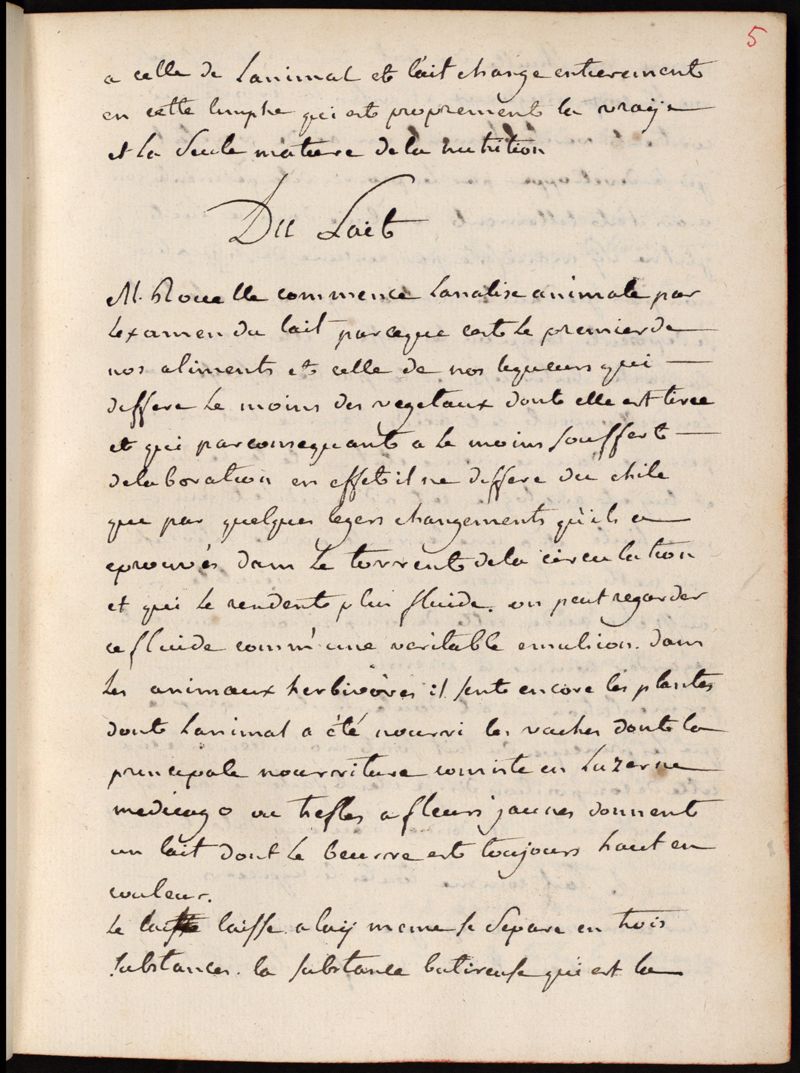 5
a celle de Lanimal et lait change entierement
en cette limphe qui est proprement la vraÿe
et la seule matiere de la nutrition
Du Lait
M. Rouelle commence Lanalise animale par
Lexamen du lait parceque cest Le premier de
nos aliments et celle de nos liqueurs qui
differe Le moins des vegetaux dont elle est tirée
et qui par consequant a le moins souffert
delaboration en effet il ne differe du chile
que par quelques legers changements qu'ils a
eprouvés dans Le torrent de la circulation
et qui Le rendent plus fluide. on peut regarder
ce fluide comm'une veritable emulsion. dans
Les animaux herbivores il sent encore les plantes
dont Lanimal a été nourri les vaches dont la
principale nourriture consiste en Luzerne
medicago ou trefles a fleurs jaunes donnent
un lait dont Le beurre est toujours haut en
couleur.
Le laisse a luÿ meme se separe en trois
substances. la substance butireuse qui est la